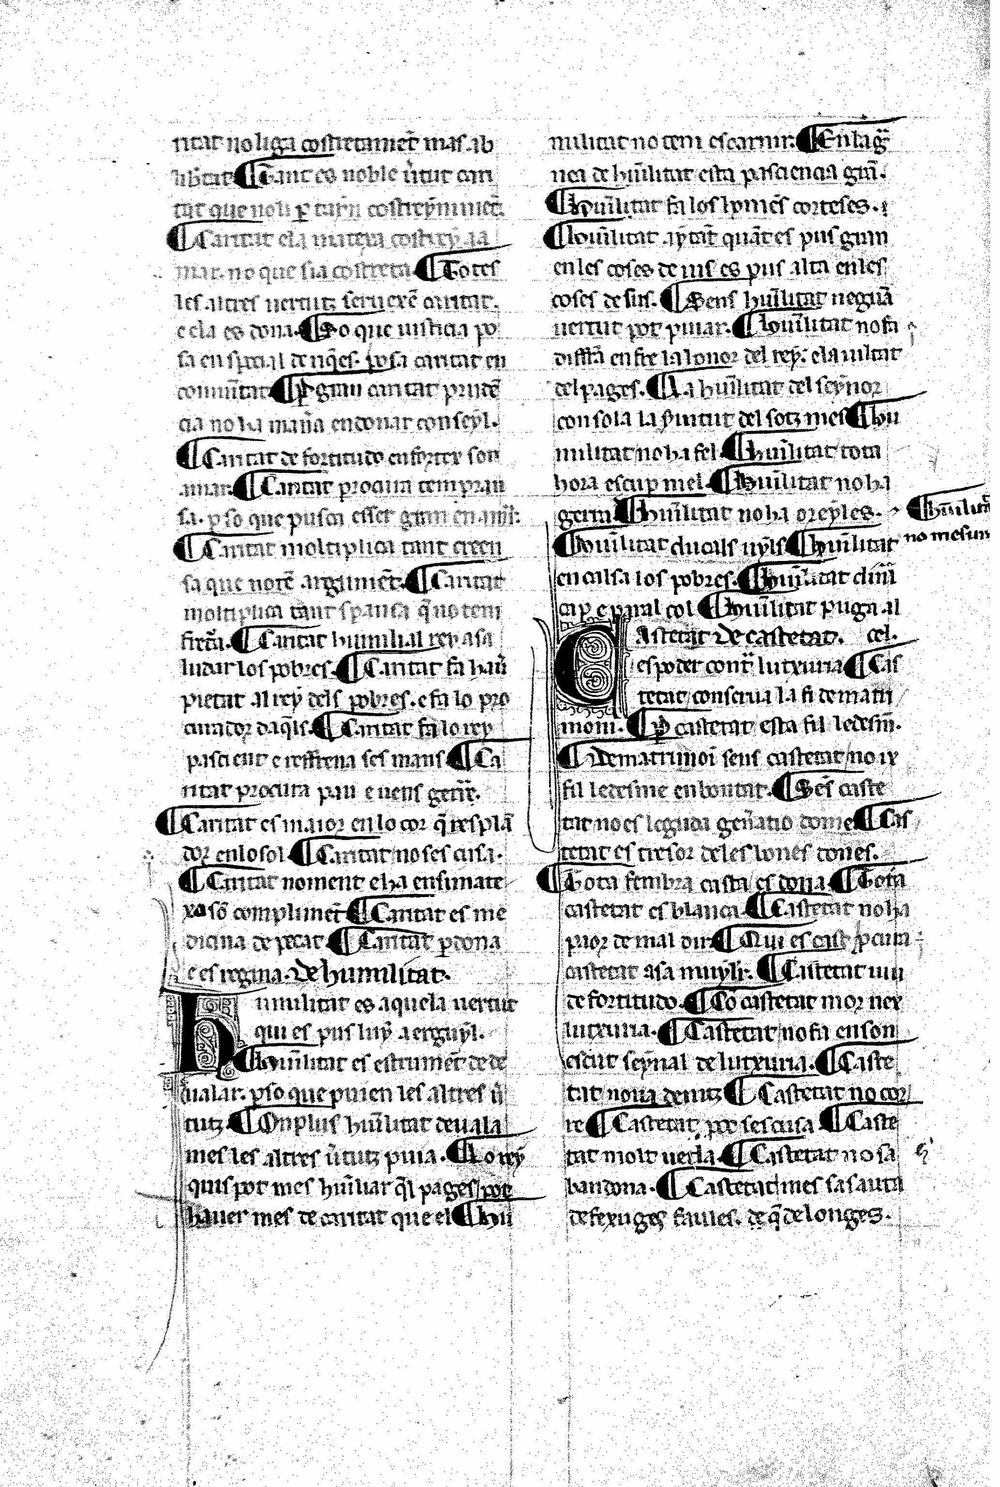 ritat no liga costretamēt mas ab
lib̄tat ¶ Tant es noble u̾tut cari
tat que noli ꝑ tayn costreymimēt.
¶ Caritat ela matexa costreỹ .aa
mar. no que sia costreta ¶ Totes
les altres uertutz seruexē caritat.
e ela es dona. ¶ So que iusticia po
sa en special de nq̄es. posa caritat en
comunitat. ¶ Per gran caritat prudē
cia no ha mań̃a en donar conseyl.
¶ Caritat de fortitudo enfortex son
amar. ¶ Caritat procura tempran
sa. ꝑ so que pusca esser gran en amī.
¶ Caritat moltiplica tant creen
sa que notē argumēt. ¶ Caritat
moltiplica tant sꝑansa q̄ no tem
fretūa. ¶ Caritat humilial rey asa
ludar los pobres. ¶ Caritat fa hau̾
pietat al rey dels pobres. e fa lo pro
curador daq̄ls. ¶ Caritat fa lo rey
pascient e reffrena ses mans ¶ Ca
ritat procura pau e uens gera̾.
¶ Caritat es maior en lo cor q̄ resplā
dor en lo sol ¶ Caritat no ses cusa.
¶ Caritat no ment e ha ensi mate
xa sō complimēt ¶ Caritat es me
dicina de pecat ¶ Caritat ꝑdona
e es regina. De humilitat.
Humilitat es aquela uertut
qui es pus luỹ a erguyl.
¶ Humīlitat es estrumēt de de
ualar. ꝑso que puien les altres u̾
tutz ¶ On plus hum̄litat deuala
mes les altres u̾tutz puia. ¶ Lo reỹ
quis pot mes hum̄liar q̄l pages pot
hauer mes de caritat que el ¶ Hu
militat no tem escarnir. ¶ En lag̃
nea de hum̄litat esta pasciencia grā.
¶ Hum̄litat fa los homēs corteses.
¶ Hum̄litat aỹtāt quāt es pus gran
en les coses de ius es pus alta en les
coses de sus. ¶ Sens hum̄litat neguā
uertut pot puiar. ¶ Hum̄litat no fa
diffrā en fre la honor del reỹ. e la uiltat
del pages. ¶ La hum̄litat del seỹnor
consola la s̾uitut del sotz mes ¶ Hu
militat no ha fel ¶ Hum̄litat tota
hora escup mel ¶ Hum̄litat no ha
gera ¶ Hum̄litat no ha oreyles.
¶ Humilitat
no mesura
¶ Hum̄litat ¶ Hum̄litat
encalsa los pobres. ¶ Hum̄litat
cap e paral col ¶ Hum̄litat puga al
cel.
Castetat De castetat.
es poder contra luxuria ¶ Cas
tetat conserua la fi de matri
moni. ¶ Per castetat esta fil ledesm̄.
¶ De matrimoni sens castetat no ix
fil ledesme en bontat. ¶ Sēs caste
tat no es leguda gen̄atio dome ¶ Cas
tetat es tresor de les bones dones.
¶ Tota fembra casta es dona. ¶ Tota
castetat es blanca. ¶ Castetat no ha
paor de mal dir ¶ Qui es cast ꝓcura
castetat asa muyler. ¶ Castetat uiu
de fortitudo. ¶ Cō castetat mor nex
luxuria. ¶ Castetat no fa en son
escut seỹnal de luxuria. ¶ Caste
tat ¶ Castetat no cor
re ¶ Castetat ses cusa ¶ Caste
tat molt uetla ¶ Castetat no sa
bandona. ¶ Castetat mes sas auta
de fexuges faues. de q̄ de longes.